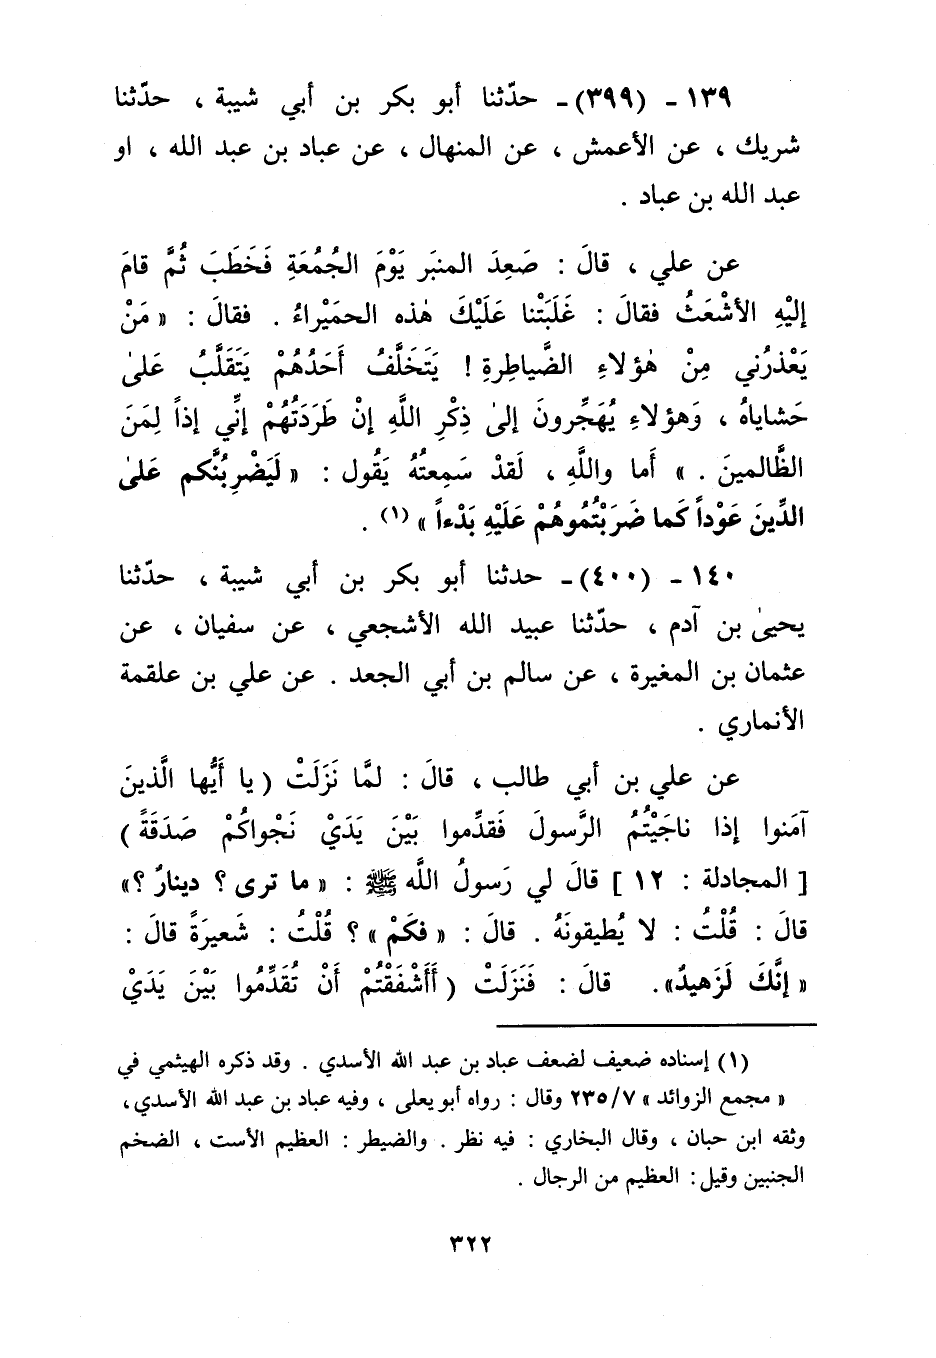 ١٣٩ - (٣٩٩)- حدّثنا أبو بكر بن أبي شيبة ، حدّثنا
شريك ، عن الأعمش ، عن المنهال ، عن عباد بن عبد الله ، او
عبد الله بن عباد .
عن علي ، قالَ : صَعِدَ المنبَر يَوْمَ الجُمُعَةِ فَخَطَبَ ثُمَّ قامَ
إليْهِ الأشْعَثُ فقالَ : غَلَبَتْنا عَلَيْكَ هٰذه الحمَيْراءُ . فقالَ : « مَنْ
يَعْذرُني مِنْ هٰؤلاءِ الضَّياطِرةِ ! يَتَخَلَّفُ أَحَدُهُمْ يَتَقَلَّبُ عَلىٰ
حَشاياهُ ، وَهؤلاءِ يُهَجِّرونَ إلىٰ ذِكْرِ اللَّهِ إنْ طَرَدَتُهُمْ إنِّي إذاً لِمَنَ
الظَّالمينَ . » أَما واللَّهِ ، لَقدْ سَمِعتُهُ يَقُول : « لَيَضْرِبُنَّكم عَلىٰ
الدِّينَ عَوْداً كَما ضَرَبْتُمُوهُمْ عَلَيْهِ بَدْءاً » (١) .
١٤٠ - (٤٠٠)- حدثنا أبو بكر بن أبي شيبة ، حدّثنا
يحيىٰ بن آدم ، حدّثنا عبيد الله الأشجعي ، عن سفيان ، عن
عثمان بن المغيرة ، عن سالم بن أبي الجعد . عن علي بن علقمة
الأنماري .
عن علي بن أبي طالب ، قالَ : لمَّا نَزَلَتْ ( يا أَيُّها الَّذينَ
آمَنوا إذا ناجَيْتُمُ الرَّسولَ فَقدِّموا بَيْنَ يَدَيْ نَجْواكُمْ صَدَقَةً )
[ المجادلة : ١٢ ] قالَ لي رَسولُ اللَّه ﷺ : « ما ترى ؟ دينارٌ ؟»
قالَ : قُلْتُ : لا يُطيقونَهُ . قالَ : « فكَمْ » ؟ قُلْتُ : شَعيرَةً قالَ :
« إنَّكَ لَزَهيدٌ». قالَ : فَنَزَلَتْ ( أَأَشْفَقْتُمْ أَنْ تُقَدِّمُوا بَيْنَ يَدَيْ
(١) إسناده ضعيف لضعف عباد بن عبد الله الأسدي . وقد ذكره الهيثمي في
« مجمع الزوائد » ٢٣٥/٧ وقال : رواه أبو يعلى ، وفيه عباد بن عبد الله الأسدي ،
وثقه ابن حبان ، وقال البخاري : فيه نظر . والضيطر : العظيم الأست ، الضخم
الجنبين وقيل : العظيم من الرجال .
٣٢٢